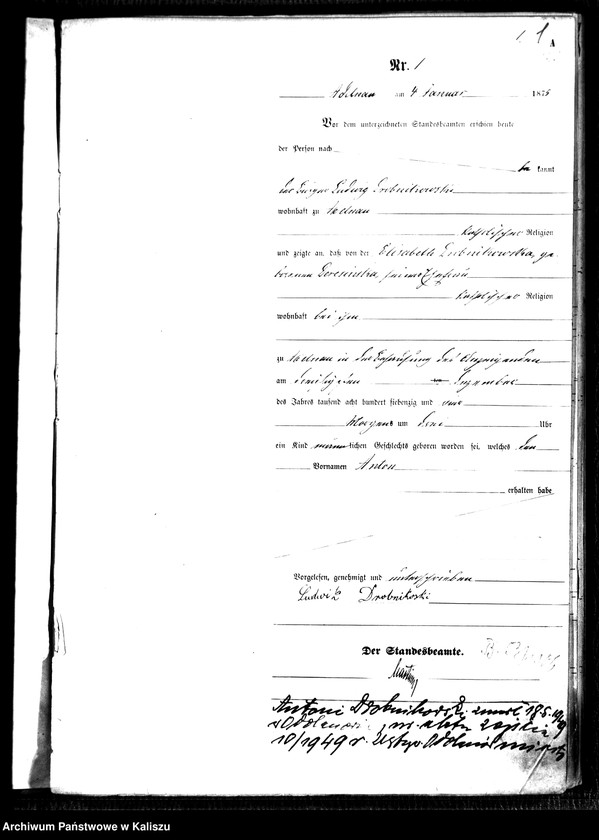 1 A
Nr. 1
Adelnau am 4 Januar 1875
Vor dem unterzeichneten Standesbeamten erschien heute
der Person nach
be kannt
der Bürger Ludwig Drobnikowski
wohnhaft zu Adelnau
katholischer Religion
und zeigte an, daß von der Elisabeth Drobnikowska, ge-
borenen seiner Ehefrau
katholischer Religion
wohnhaft bei ihm
zu Adelnau in der Behausung des Anzeigenden
am dreißigsten Dezember
des Jahres tausend acht hundert siebenzig und vier
Morgens um drei Uhr
ein Kind männlichen Geschlechts geboren worden sei, welches den
Vornamen Anton
erhalten habe
Vorgelesen, genehmigt und unterschrieben
Ludwik Drobnikoski
Der Standesbeamte.
Antoni Drobnikowski zmarł 18.5. 1949
w Odolanowie, nr. aktu zejścia
10/1949 r. Odolanów miasto
Archiwum Państwowe w Kaliszu